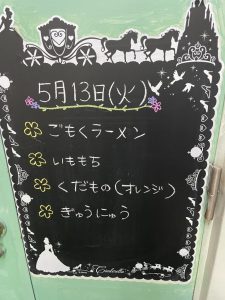 5月13日(火)
ごもくラーメン
いももち
くだもの(オレンジ)
ぎゅうにゅう
Cinderella